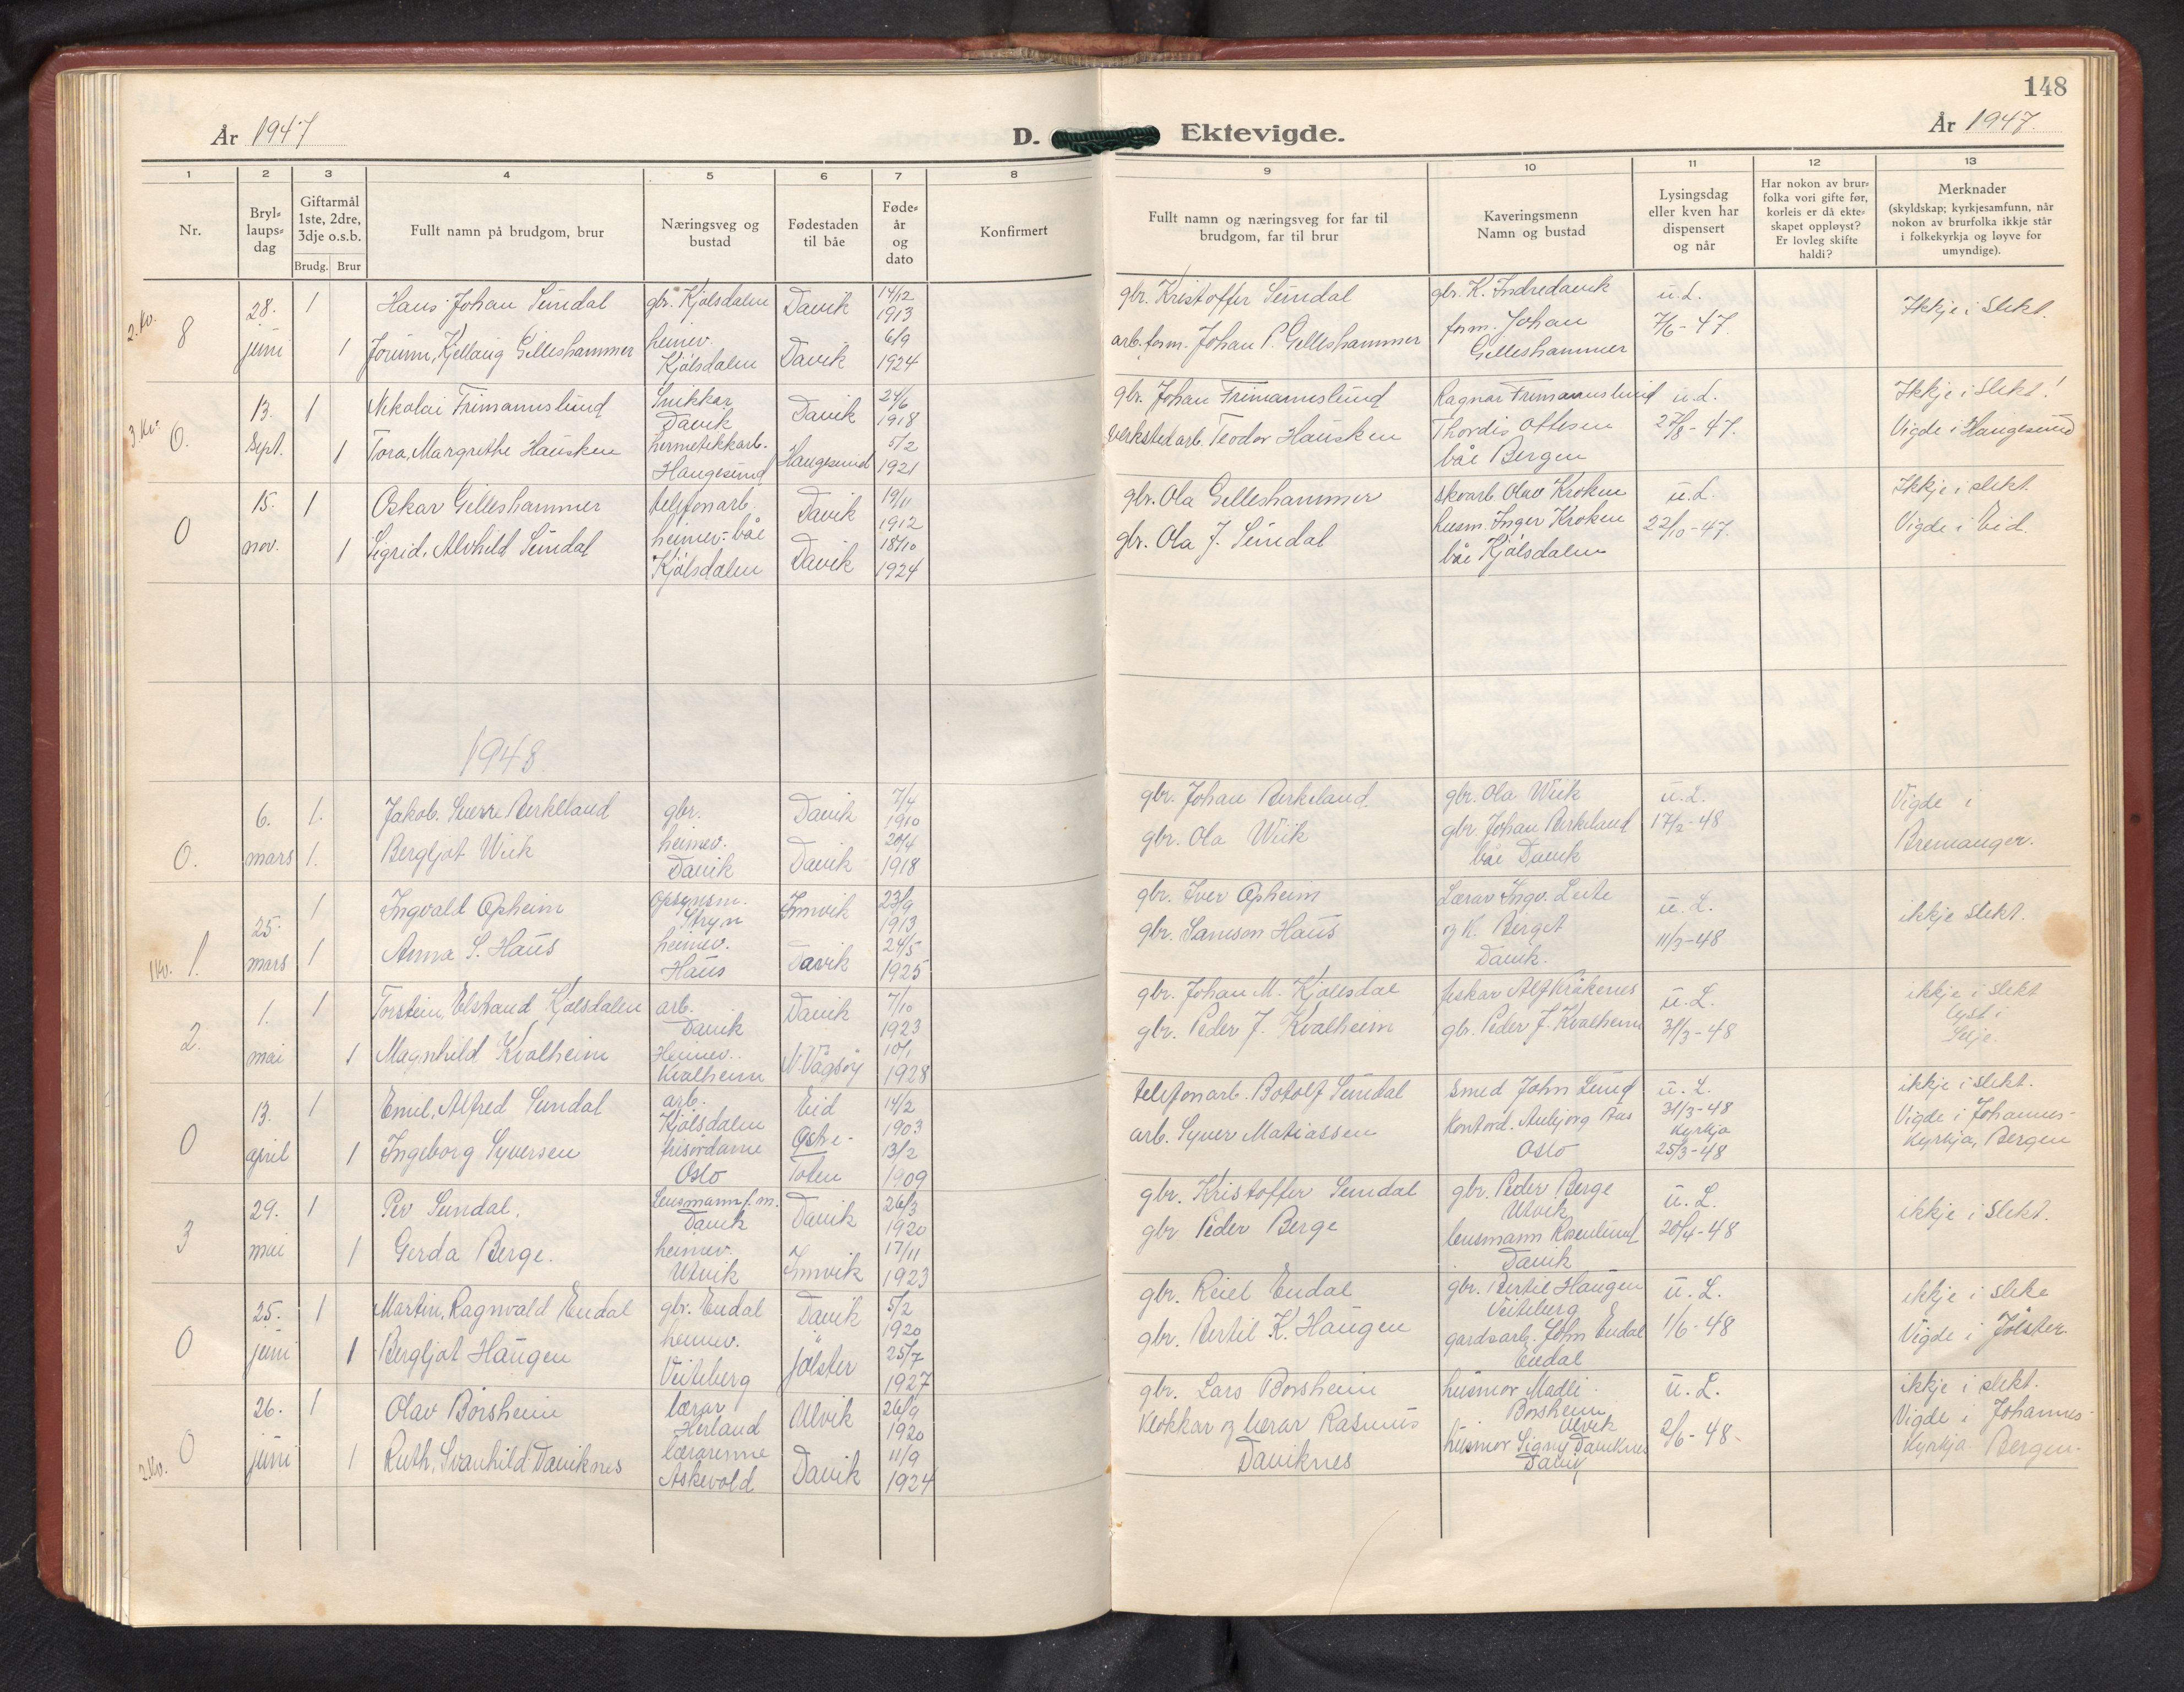 148
År 1947
D.
Ektevigde.
År 1947.
1
2
3
4
5
6
7
8
9
10
11
12
13
Nr.
Bryl-
laups-
dag
Giftarmål
1ste, 2dre,
3dje o.s.b.
Brudg. Brur
Fullt namn på brudgom, brur
Næringsveg og
bustad
Fødestaden
til båe
Føde-
år
og
dato
Konfirmert
Fullt namn og næringsveg for far til
brudgom, far til brur
Kaveringsmenn
Namn og bustad
Lysingsdag
eller kven har
dispensert
og når
Har nokon av brur-
folka vori gifte før,
korleis er då ekte-
skapet oppløyst?
Er lovleg skifte
haldi?
Merknader
(skyldskap; kyrkjesamfunn, når
nokon av brurfolka ikkje står
i folkekyrkja og løyve for
umyndige).
2. kv.
8
28.
juni
1
Hans Johan Sundal
gbr. Kjølsdalen
Davik
14/12
1913
gbr. Kristoffer Sundal
gbr. K. Indredavik
u.L.
7/6-47.
Ikkje i Slekt.
1
Jorunn, Kjellaug Gilleshammer
heimev.
Kjølsdalen
Davik
6/9
1924
arb.form. Johan P. Gilleshammer
form. Johan
Gilleshammer
3. kv.
0.
13.
Sept.
1
Nikolai Frimannslund
Snikkar
Davik
Davik
24/6
1918
gbr. Johan Frimannslund
Ragnar Frimannslund
u.L.
27/8-47.
Ikkje i slekt!
Vigde i Haugesund
1
Tora, Margrethe Hausken
hermetikkarb.
Haugesund
Haugesund
5/2
1921
verkstedarb. Teodor Hausken
Thordis Ottesen
båe Bergen
0
15.
nov.
1
Oskar Gilleshammer
telefonarb.
Davik
19/11
1912
gbr. Ola Gilleshammer
skoarb. Olav Kroken
u.L.
22/10-47.
Ikkje i slekt
Vigde i Eid.
1
Sigrid, Alvhild Sundal
heimev. båe
Kjølsdalen
Davik
18/10
1924
gbr. Ola J. Sundal
husm. Inger Kroken
båe Kjølsdalen
1948
0.
6.
mars
1.
Jakob. Sverre Birkeland
gbr.
Davik
7/4
1910
gbr. Johan Birkeland
gbr. Ola Wiik
u.L.
17/2-48
Vigde i
Bremanger.
1.
Bergljot Wiik
heimev.
Davik
Davik
20/4
1918
gbr. Ola Wiik
gbr. Johan Birkeland
båe Davik
1kv.
1.
25.
mars
1
Ingvald Opheim
opsynsm.
Stryn
Innvik
23/9
1913
gbr. Iver Opheim
Lærar Ingv. Leite
u.L.
11/3-48
ikkje slekt.
1
Anna S. Haus
heimev.
Haus
Davik
24/5
1925
gbr. Samson Haus
og K. Berget
Davik.
2.
1.
mai
1
Torstein, Elstrand Kjølsdalen
arb.
Davik
Davik
7/10
1923
gbr. Johan M. Kjølsdal
fiskar Alf Kråkenes
u.L.
31/3-48
ikkje i slekt
Lyst i
Selje.
1
Magnhild Kvalheim
Heimev.
Kvalheim
N. Vågsøy
10/1
1928
gbr. Peder J. Kvalheim
gbr. Peder J. Kvalheim
0
13.
april
1
Emil, Alfred Sundal
arb.
Kjølsdalen
Eid
14/2
1903
telefonarb. Botolf Sundal
Smed John Lund
u.L.
31/3-48
Kyrkja
25/3-48
ikkje i slekt.
Vigde i Johannes-
Kyrkja, Bergen
1
Ingeborg Syversen
frisørdame
Oslo
Østre-
Toten
13/2
1909
arb. Syver Matiassen
Oslo
3
29.
mai
1
Per Sundal.
Lensmannf.m.
Davik
Davik
26/3
1920
gbr. Kristoffer Sundal
gbr. Peder Berge
Utvik
u.L.
20/4-48
ikkje i slekt.
1
Gerda Berge.
heimev.
Utvik
Innvik
17/11
1923
gbr Peder Berge
lensmann Rosenlund
Davik
0
25.
juni
1
Martin, Ragnvald Endal
gbr. Endal
Davik
5/2
1920
gbr. Reiel Endal
gbr. Bertil Haugen
Veiteberg
u.L.
1/6-48
ikkje i slekt
Vigde i Jølster.
1
Bergljot Haugen
heimev.
Veiteberg
Jølster
25/7
1927
gbr. Bertil K. Haugen
gardsarb. John Endal
Endal
2.kv.
0
26.
juni
1
Olav Børsheim
lærar
Herland
Ulvik
26/9
1920
gbr. Lars Børsheim
husmor Madli
Børsheim
Ulvik
u.L.
2/6-48-
ikkje i slekt.
Vigde i Johannes-
Kyrkja. Bergen-
1
Ruth, Svanhild Daviknes
lærarinne
Askevold
Davik
11/9
1924
Klokkar og lærar Rasmus
Daviknes
husmor Signy Daviknes
Davik